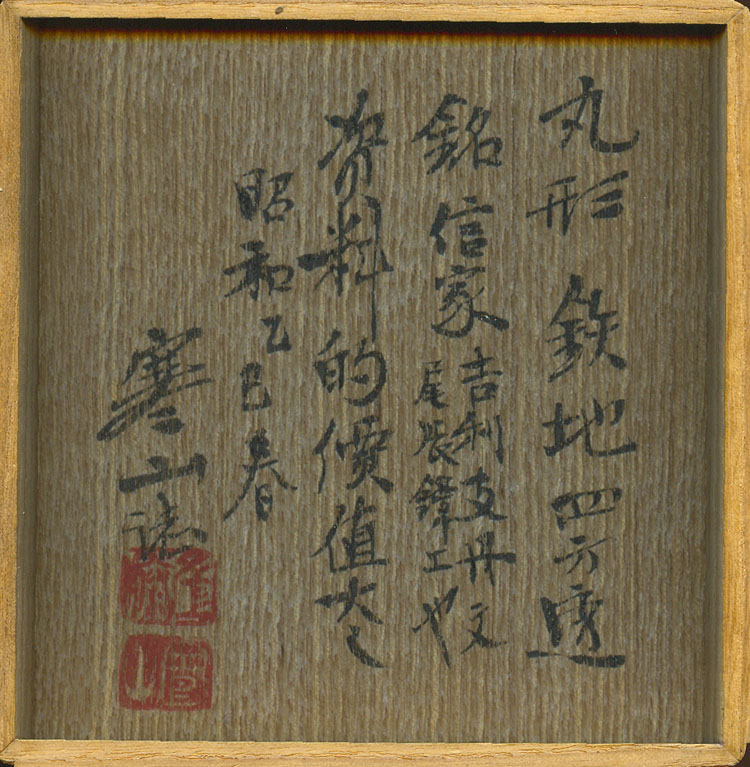 丸形 鉄地四方透
銘 信家 吉利支丹文
尾張鐔工也
資料的價值大
昭和乙巳春
寒山誌